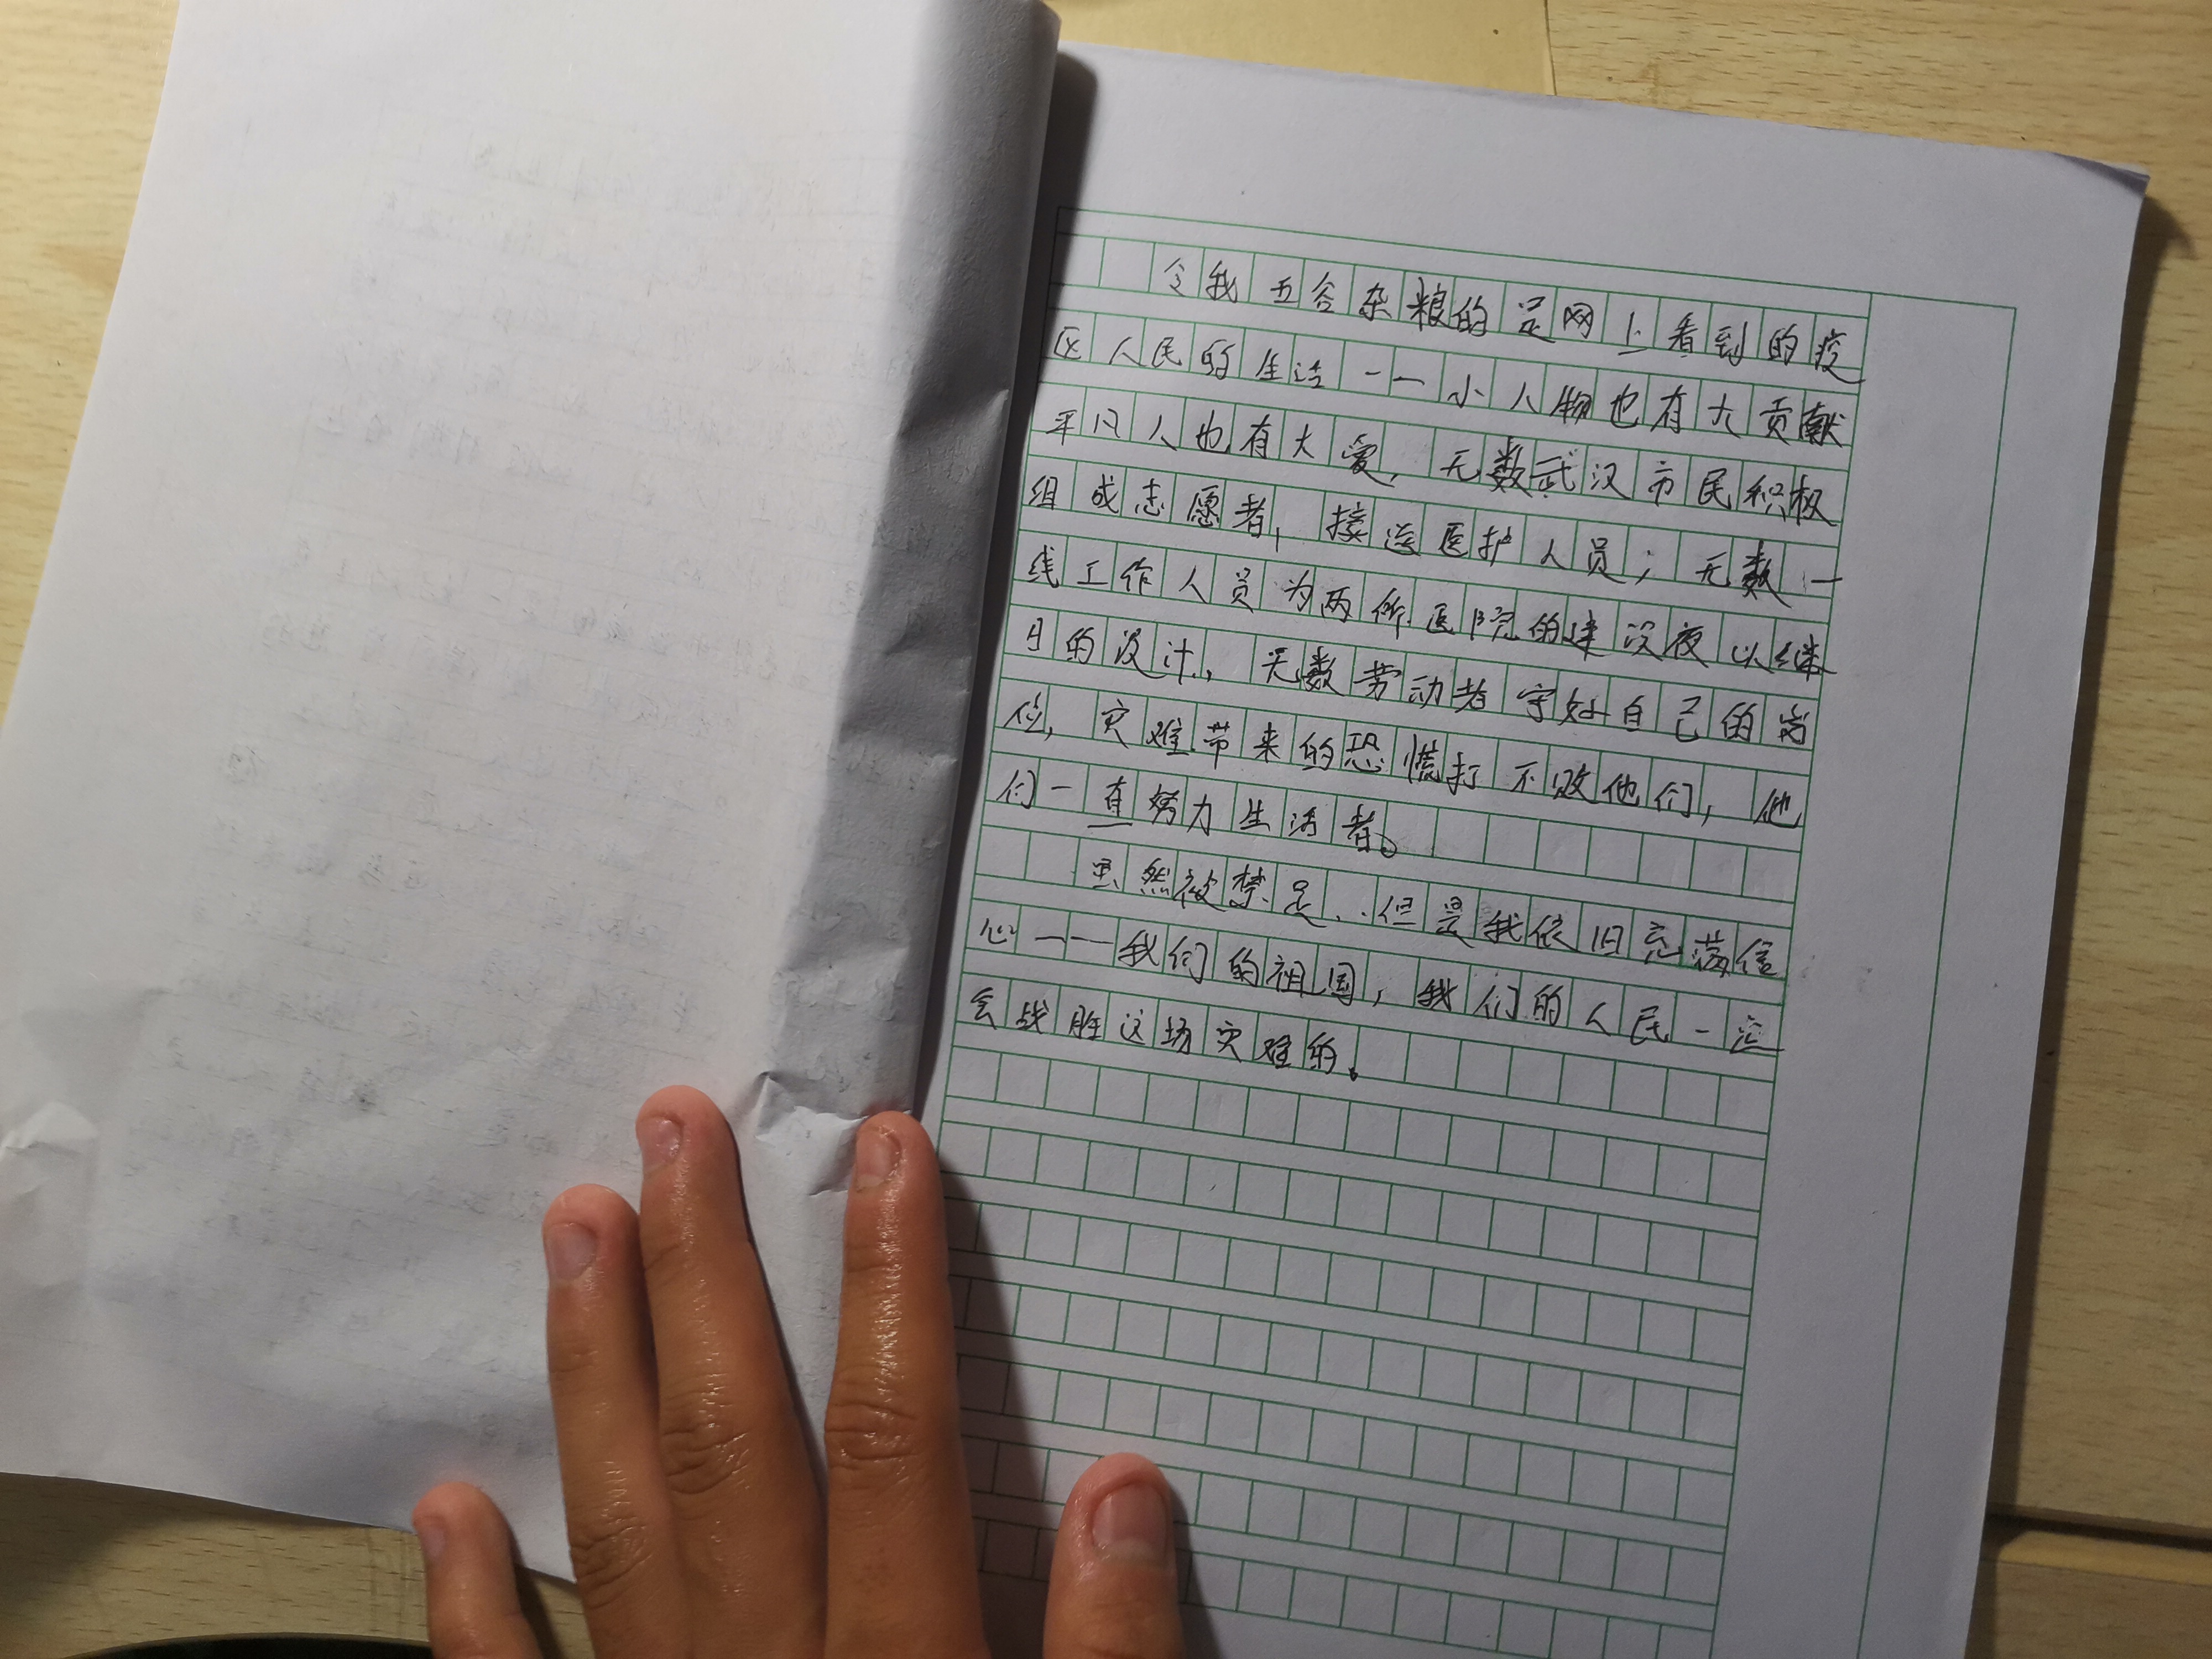 令我五谷杂粮的是网上看到的疫
区人民的生活——小人物也有大贡献
平凡人也有大爱，无数武汉市民积极
组成志愿者，接送医护人员；无数一
线工作人员为两所医院的建设夜以继
日的设计，无数劳动者守好自己的岗
位，灾难带来的恐慌打不败他们，他
们一直努力生活着。
虽然被禁足，但是我依旧充满信
心——我们的祖国，我们的人民一定
会战胜这场灾难的。